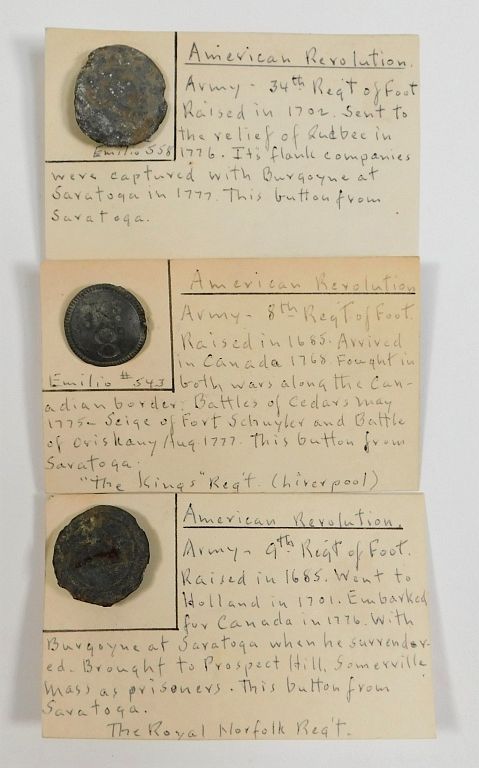 American Revolution.
Army - 34th Reg't of Foot
Raised in 1702. Sent to
the relief of Quebec in
Emilio 558
1776. Its flank companies
were captured with Burgoyne at
Saratoga in 1777. This button from
Saratoga.
American Revolution
Army - 8th Reg't of Foot.
Raised in 1685. Arrived
in Canada 1768. Fought in
Emilio # 543
both wars along the Can-
adian border. Battles of Cedars May
1775 - Seige of Fort Schuyler and Battle
of Oriskany Aug 1777. This button from
Saratoga.
"The Kings" Reg't. (Liverpool)
K 8
American Revolution.
Army - 9th Reg't of Foot.
Raised in 1685. Went to
Holland in 1701. Embarked
for Canada in 1776. With
Burgoyne at Saratoga when he surrender-
ed. Brought to Prospect Hill, Somerville
Mass as prisoners. This button from
Saratoga.
The Royal Norfolk Reg't.